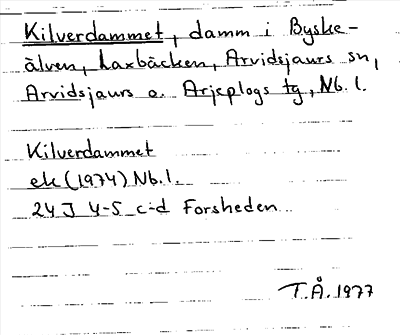 Kilverdammet, damm i Byske-
älven, Laxbäcken, Arvidsjaurs sn,
Arvidsjaurs o. Arjeplogs tg, Nb. l.
Kilverdammet
ek (1974) Nb. l.
24 J 4-5 c-d Forsheden
T.Å. 1977